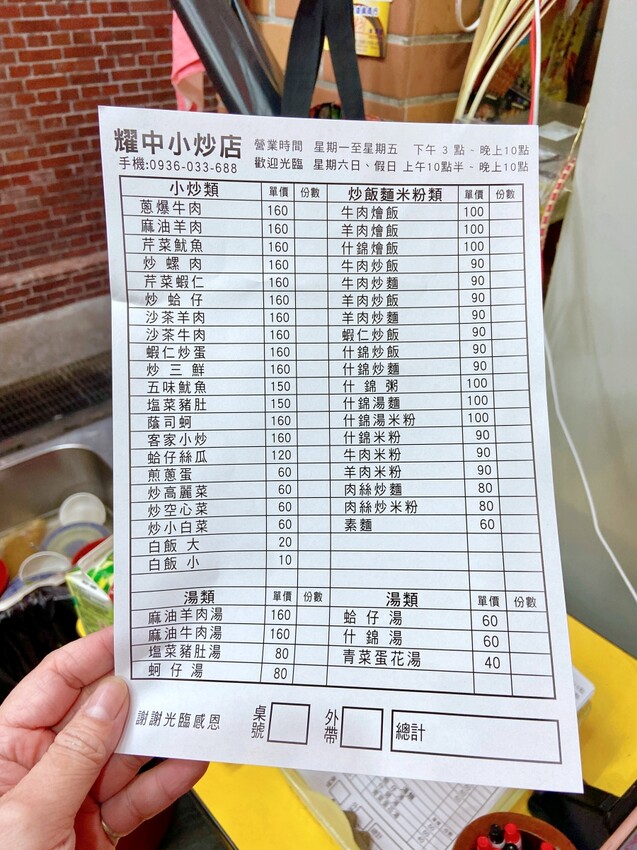 耀中小炒店
手機:0936-033-688
營業時間 星期一至星期五 下午3點-晚上10點
歡迎光臨 星期六日、假日 上午10點半-晚上10點
小炒類 單價 份數
蔥爆牛肉 160
麻油羊肉 160
芹菜魷魚 160
炒螺肉 160
芹菜蝦仁 160
炒蛤仔 160
沙茶羊肉 160
沙茶牛肉 160
蝦仁炒蛋 160
炒三鮮 160
五味魷魚 150
塩菜豬肚 150
蔭司蚵 160
客家小炒 160
蛤仔絲瓜 120
煎蔥蛋 60
炒高麗菜 60
炒空心菜 60
炒小白菜 60
白飯 大 20
白飯 小 10
炒飯麵米粉類 單價 份數
牛肉燴飯 100
羊肉燴飯 100
什錦燴飯 100
牛肉炒飯 90
牛肉炒麵 90
羊肉炒飯 90
羊肉炒麵 90
蝦仁炒飯 90
什錦炒飯 90
什錦炒麵 90
什錦粥 100
什錦湯麵 100
什錦湯米粉 100
什錦米粉 90
牛肉米粉 90
羊肉米粉 90
肉絲炒麵 80
肉絲炒米粉 80
素麵 60
湯類 單價 份數
麻油羊肉湯 160
麻油牛肉湯 160
塩菜豬肚湯 80
蚵仔湯 80
湯類 單價 份數
蛤仔湯 60
什錦湯 60
青菜蛋花湯 40
謝謝光臨感恩
桌號
外帶
總計